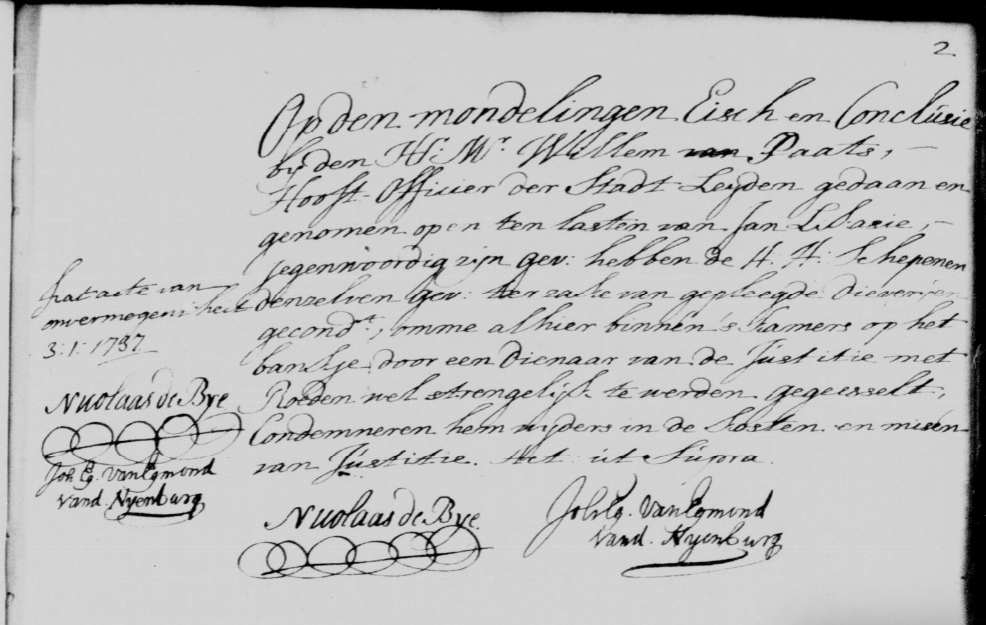 2
Op den mondelingen Eisch en Conclusie
by den H: Mr. Willem van Paats,
Hooft Officier der Stadt Leyden gedaan en
genomen op en ten lasten van Jan
jegenwoordig zijn gev: hebben de H. H: Schepenen
denzelven gev: ter zake van gepleegde Dieverijen
gecondt, omme alhier binnen 's Kamers op het
bankje door een Dienaar van de Justitie met
Roeden wel strengelijk te werden gegeesselt,
Condemneren hem wyders in de kosten en misen
van Justitie. Act ut Supra.
fiat acte van
onvermogentheit
3:1:1737
Nicolaas de Bye
Joh Eg. van Egmond
vand. Nyenburg
Nicolaas de Bye
Joh Eg. van Egmond
vand. Nyenburg